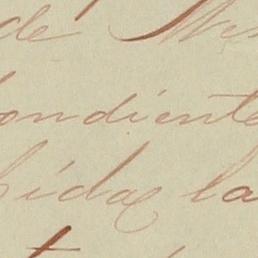 de
ondiente
bidas la